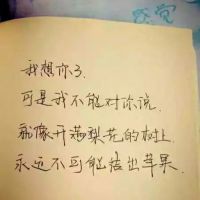 感觉
我想你了.
可是我不能对你说.
就像开满梨花的树上.
永远不可能结出苹果.